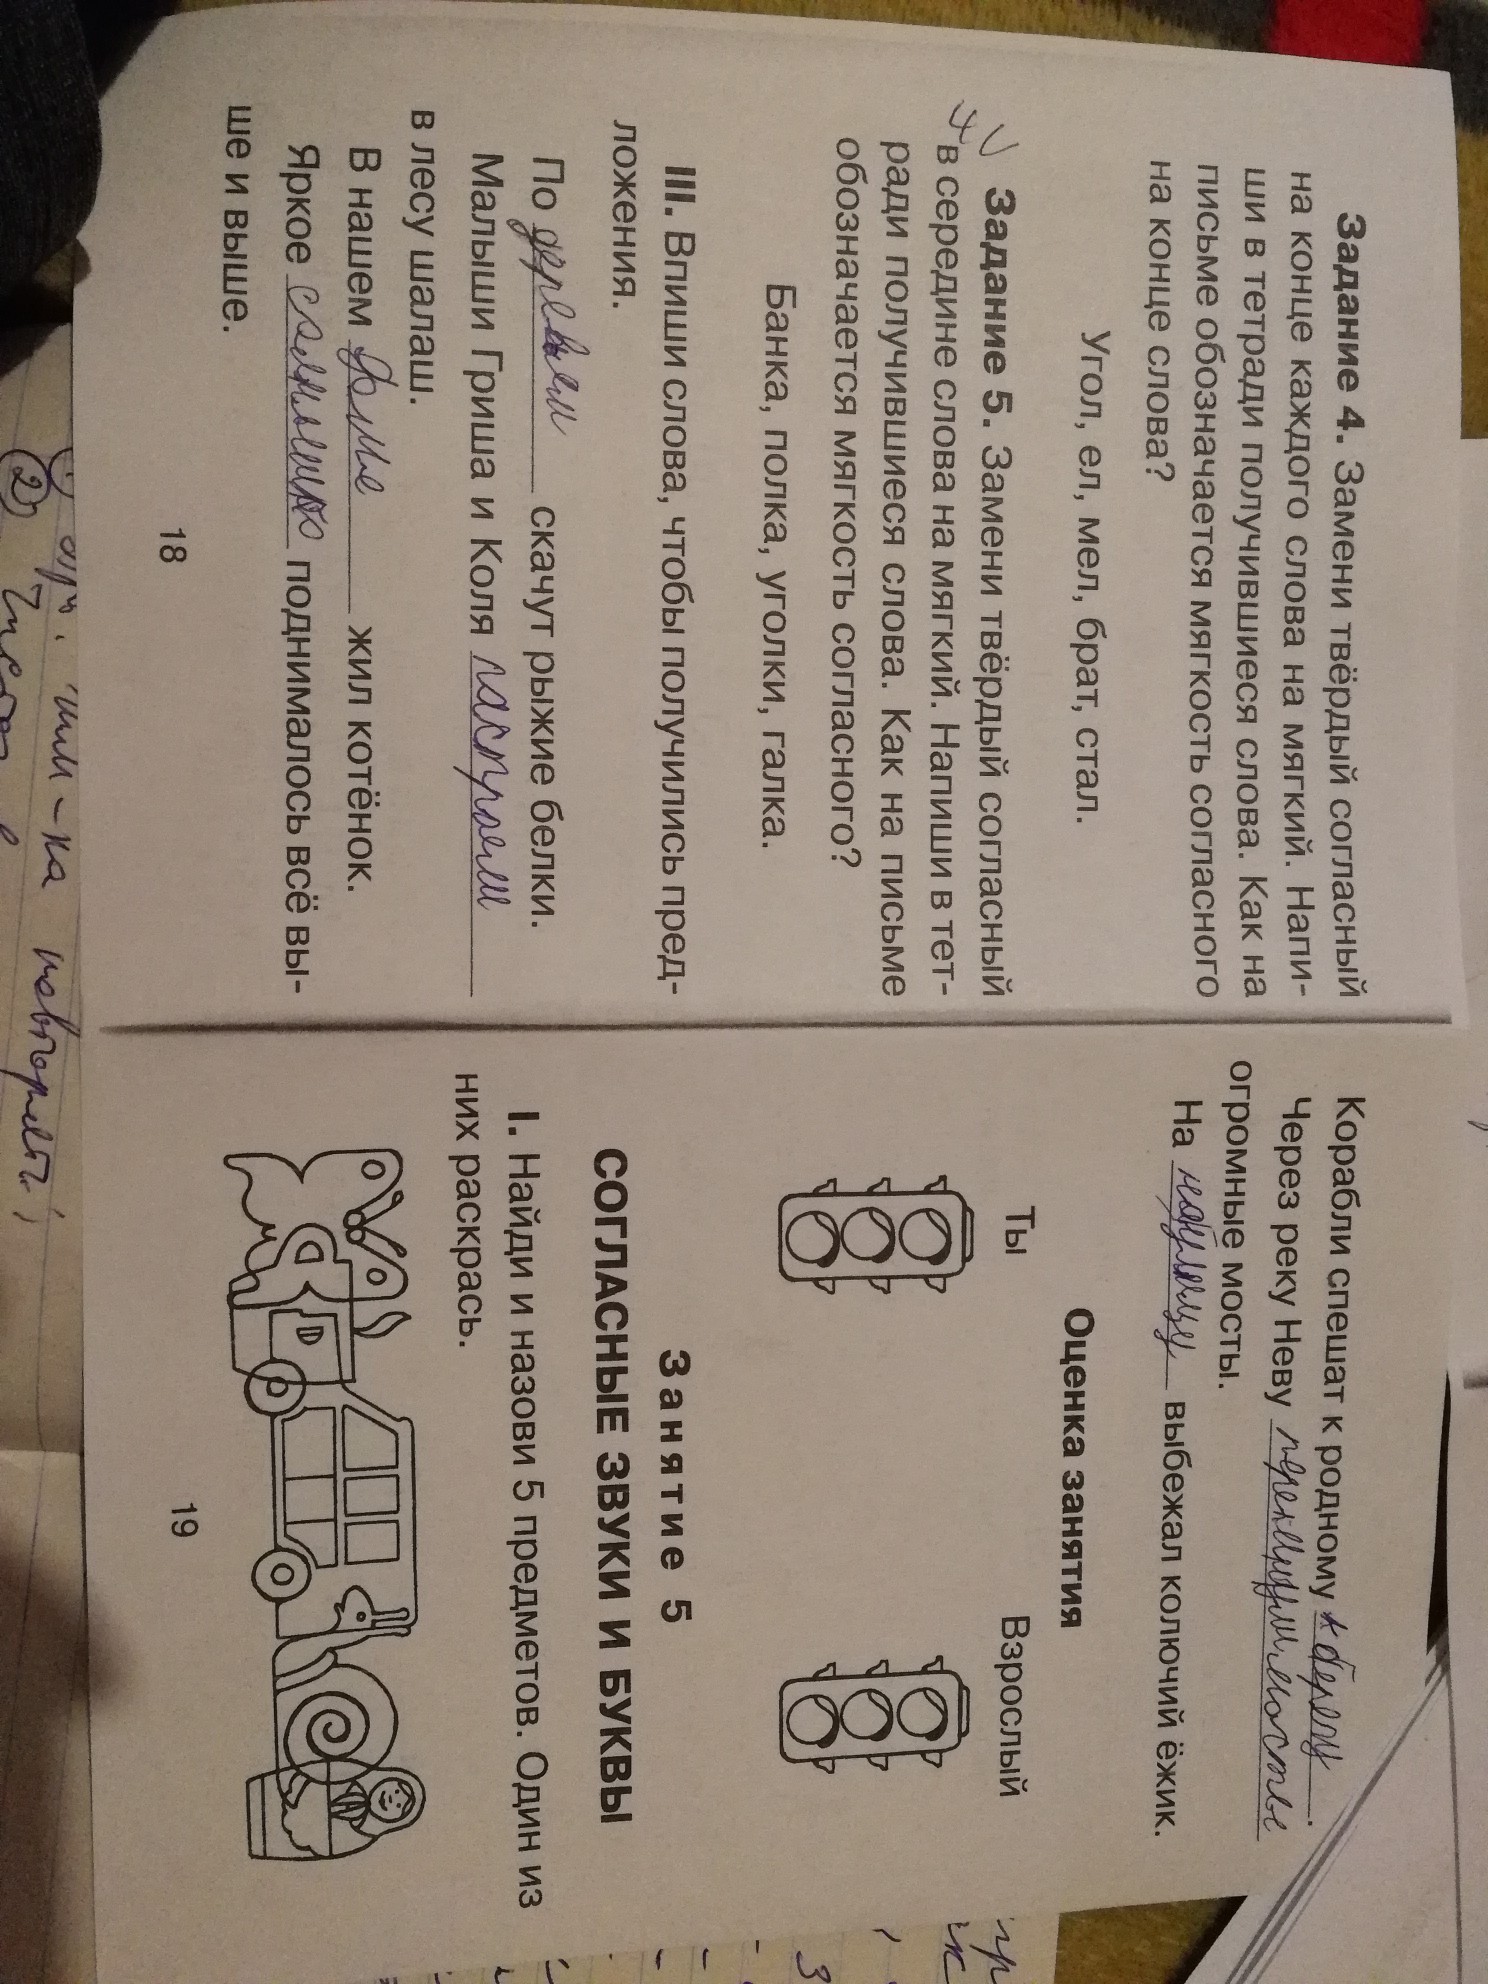 Задание 4. Замени твёрдый согласный
на конце каждого слова на мягкий. Напи-
ши в тетради получившиеся слова. Как на
письме обозначается мягкость согласного
на конце слова?
Угол, ел, мел, брат, стал.
Задание 5. Замени твёрдый согласный
в середине слова на мягкий. Напиши в тет-
ради получившиеся слова. Как на письме
обозначается мягкость согласного?
Банка, полка, уголки, галка.
III. Впиши слова, чтобы получились пред-
ложения.
По скачут рыжие белки.
Малыши Гриша и Коля
в лесу шалаш.
В нашем доме жил котёнок.
Яркое поднималось всё вы-
ше и выше.
18
Корабли спешат к родному берегу.
Через реку Неву
огромные мосты.
На выбежал колючий ёжик.
Оценка занятия
Ты Взрослый
Занятие 5
СОГЛАСНЫЕ ЗВУКИ И БУКВЫ
I. Найди и назови 5 предметов. Один из
них раскрась.
19